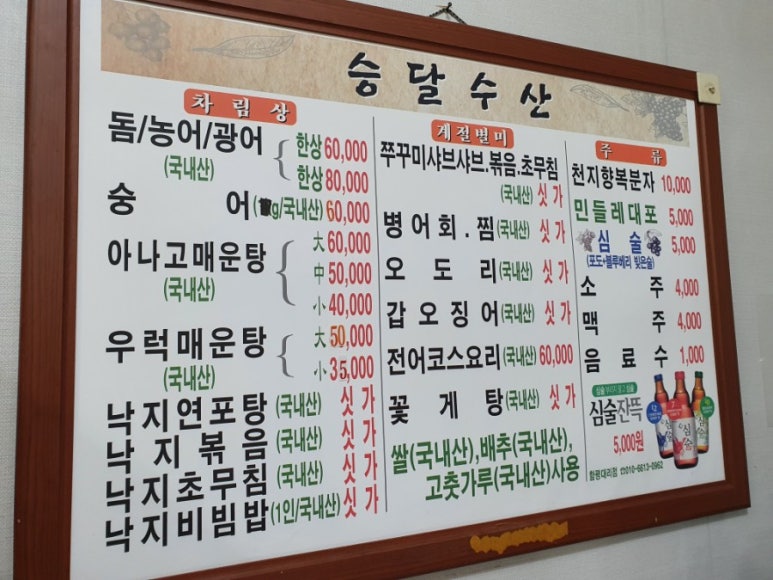 승달수산
차림상
돔/농어/광어 한상 60,000
(국내산) 한상 80,000
숭어(kg/국내산) 60,000
아나고매운탕 大 60,000
(국내산) 中 50,000
小 40,000
우럭매운탕 大 50,000
(국내산) 小 35,000
낙지연포탕(국내산) 싯가
낙지볶음(국내산) 싯가
낙지초무침(국내산) 싯가
낙지비빔밥(1인/국내산) 싯가
계절별미
쭈꾸미샤브샤브.볶음.초무침
(국내산) 싯가
병어회.찜(국내산) 싯가
오도리(국내산) 싯가
갑오징어(국내산) 싯가
전어코스요리(국내산) 60,000
꽃게탕(국내산) 싯가
쌀(국내산),배추(국내산),
고춧가루(국내산)사용
주류
천지향복분자 10,000
민들레대포 5,000
심술 5,000
(포도+블루베리 빚은술)
소주 4,000
맥주 4,000
음료수 1,000
심술잔뜩
5,000원
함평대리점 ☎010-6613-0962